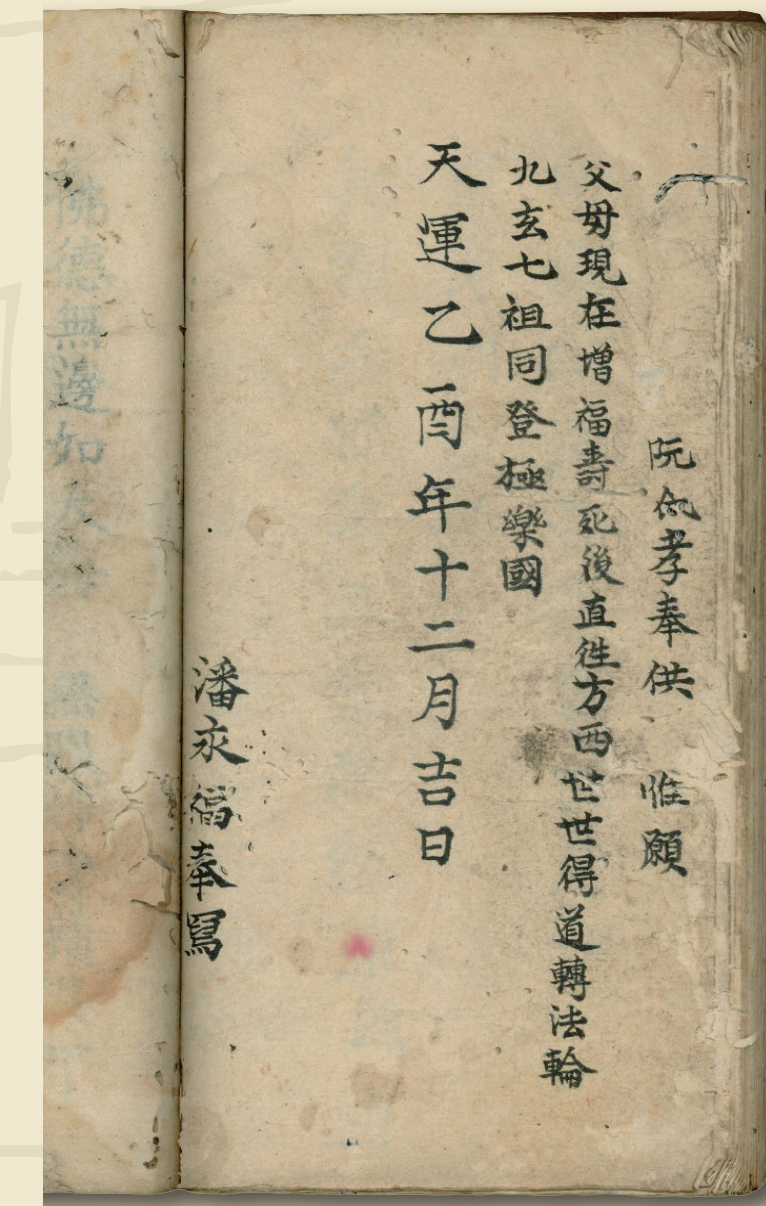 阮孝奉供 惟願
父母現在增福壽死後直徃方西世世得道轉法輪
九玄七祖同登極樂國
天運乙酉年十二月吉日
潘永福奉寫
佛德無邊如大